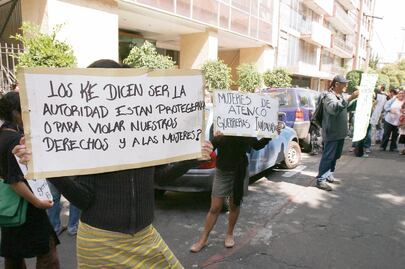 LOS KE DICEN SER LA
AUTORIDAD ESTAN PROTEGIENDO
O PARA VIOLAR NUESTROS
DERECHOS Y A LAS MUJERES?
MUJERES DE
ATENCO
GUERRERAS